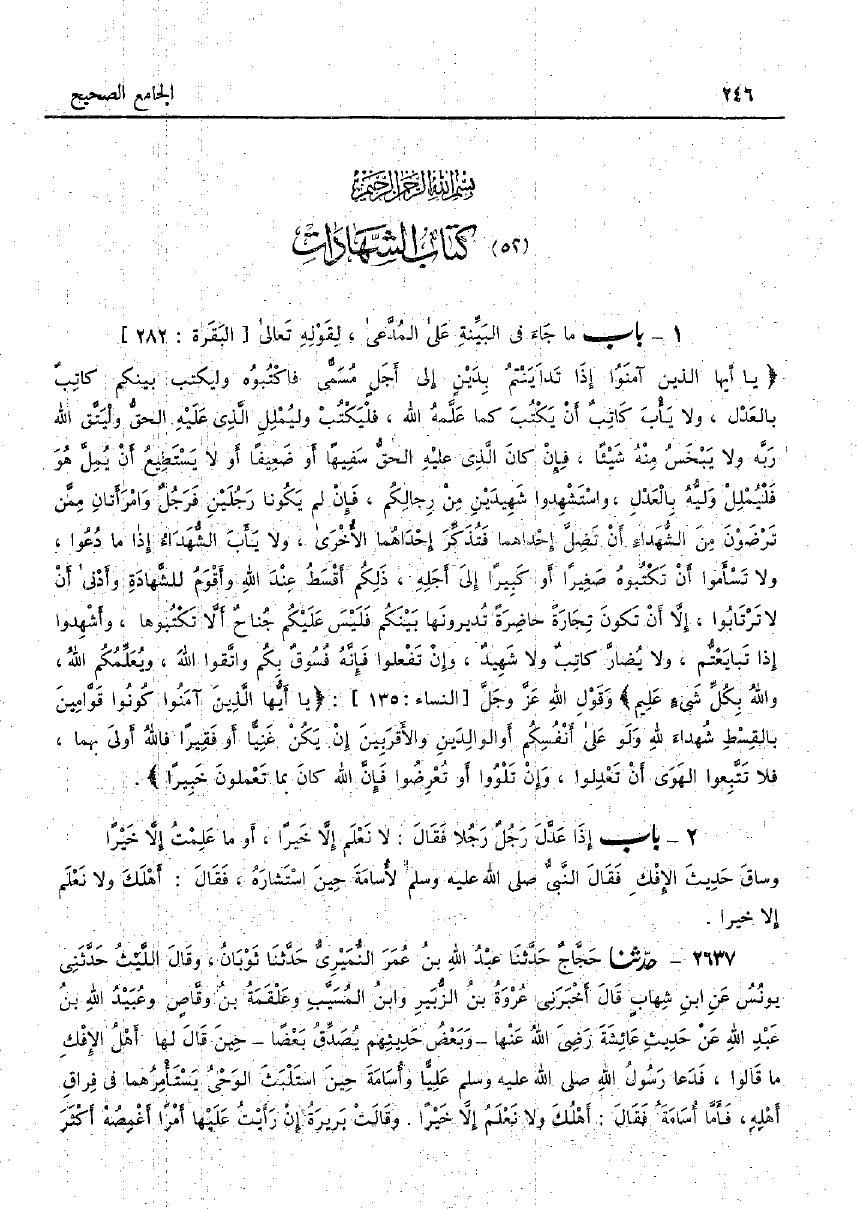 ٢٤٦ الجامع الصحيح
بسم الله الرحمن الرحيم
(٥٢) كتاب الشهادات
١ – باب ما جَاءَ فى البَيِّنةِ عَلىٰ المُدَّعىٰ ، لِقَوْلِهِ تَعالىٰ [ البَقَرة : ٢٨٢ ]
﴿ يا أيها الذين آمَنُوا إذَا تَدايَنْتمُ بِدَيْنٍ إلى أجَلٍ مُسَمًّى فاكْتُبوُه وليكتب بينكم كاتِبٌ
بالعَدْل ، ولا يَأْبَ كاتِبٌ أنْ يَكْتُبَ كما علَّمهُ الله ، فلْيَكْتُبْ وليُمْلِلِ الَّذِى عَلَيْهِ الحقُّ ولْيَتَّقِ الله
رَبَّه ولا يَبْخَسُ مِنْهُ شَيْئًا ، فإنْ كانَ الَّذى عليْهِ الحقُّ سَفِيهًا أو ضَعِيفًا أو لا يَسْتَطِيعُ أنْ يُمِلَّ هُوَ
فَلْيُمْلِلْ وَلِيُّهُ بِالْعَدْلِ ، واسْتَشْهِدوا شَهِيدَيْنِ مِنْ رِجالِكُم ، فَإنْ لم يَكُونا رَجُلَيْنِ فَرَجُلٌ وَامْرَأتانِ مِمَّن
تَرْضَوْنَ مِنَ الشُّهَداءِ أنْ تَضِلَّ إحْداهما فَتُذَكِّرَ إحْدَاهُما الأُخْرَىٰ ، ولا يَأْبَ الشُّهَدَاءُ إذَا ما دُعُوا ،
ولا تَسْأموا أنْ تَكْتُبوهُ صَغِيرًا أو كَبِيرًا إلىٰ أجَلِهِ ، ذَلِكُم أقْسَطُ عِنْدَ اللهِ وأقْوَمُ للشَّهادَةِ وأدْنىٰ أنْ
لا تَرْتابُوا ، إلَّا أنْ تكونَ تِجارَةً حاضِرَةً تُديرونَها بَيْنَكُم فَلَيْسَ عَلَيْكُم جُناحٌ ألَّا تَكْتُبوها ، وأشْهِدوا
إذا تَبايَعْتُم ، ولا يُضارَّ كاتِبٌ ولا شَهِيدٌ ، وإنْ تَفْعلوا فإنَّهُ فُسُوقٌ بِكُم واتَّقوا اللهَ ، ويُعَلِّمُكُم اللهُ ،
واللهُ بِكُلِّ شَىءٍ عَلِيم﴾ وَقَولِ اللهِ عَزَّ وجَلَّ [النساء : ١٣٥ ] : ﴿يا أيُّها الَّذِينَ آمَنُوا كُونُوا قَوَّامِينَ
بالقِسْطِ شُهداءَ للهِ وَلَو علىٰ أنْفُسِكُم أوالوالِدَينِ والأقْرَبِينَ إنْ يَكُنْ غَنِيًّا أو فَقِيرًا فاللهُ أولىٰ بهما ،
فلا تَتَّبِعوا الهَوَى أنْ تَعْدِلوا ، وَإنْ تَلْوُوا أو تُعْرِضُوا فَإنَّ الله كانَ بما تَعْملونَ خَبِيرًا ﴾ .
٢ – باب إذَا عَدَّلَ رَجُلٌ رَجُلًا فَقَالَ : لا نَعْلَم إلَّا خَيرًا ، أو ما عَلِمْتُ إلَّا خَيْرًا
وساقَ حَدِيثَ الإفْكِ فَقَالَ النَّبىُّ صلى الله عليه وسلم لأُسامَةَ حِينَ اسْتَشارَهُ ، فَقَالَ : أهْلَكَ ولا نَعْلَم
إلا خيرا .
٢٦٣٧ – حدّثنا حَجَّاجٌ حَدَّثَنا عبْدُ اللهِ بنُ عُمَرَ النُّمَيْرِىُّ حَدَّثَنا ثَوْبَانُ ، وقَالَ اللَّيْثُ حَدَّثَنِى
يونُسُ عَنِ ابنِ شِهابٍ قَالَ أخْبَرَنِى عُرْوَةُ بنُ الزُّبَيرِ وابنُ المُسَيَّبِ وعَلْقَمَةُ بنُ وقَّاصٍ وعُبَيْدُ اللهِ بنُ
عَبْدِ اللهِ عَنْ حَدِيثِ عائِشَةَ رَضِىَ اللهُ عَنْها – وَبَعْضُ حَدِيثِهِم يُصَدِّقُ بَعْضًا – حِينَ قالَ لها أهْلُ الإفْكِ
ما قَالوا ، فَدَعا رَسُولُ اللهِ صلى الله عليه وسلم عَلِيًّا وأُسامَةَ حِينَ استَلْبَثَ الوَحْىُ يَسْتَأْمِرُهما فى فِراقِ
أهْلِهِ ، فَأَمَّا أُسَامَةُ فَقَالَ : أهْلُكَ ولا نَعْلَمُ إلَّا خَيْرًا . وقَالَتْ بَرِيرَةُ إنْ رَأيْتُ عَلَيْها أمْرًا أغْمِصُهُ أكْثَرَ